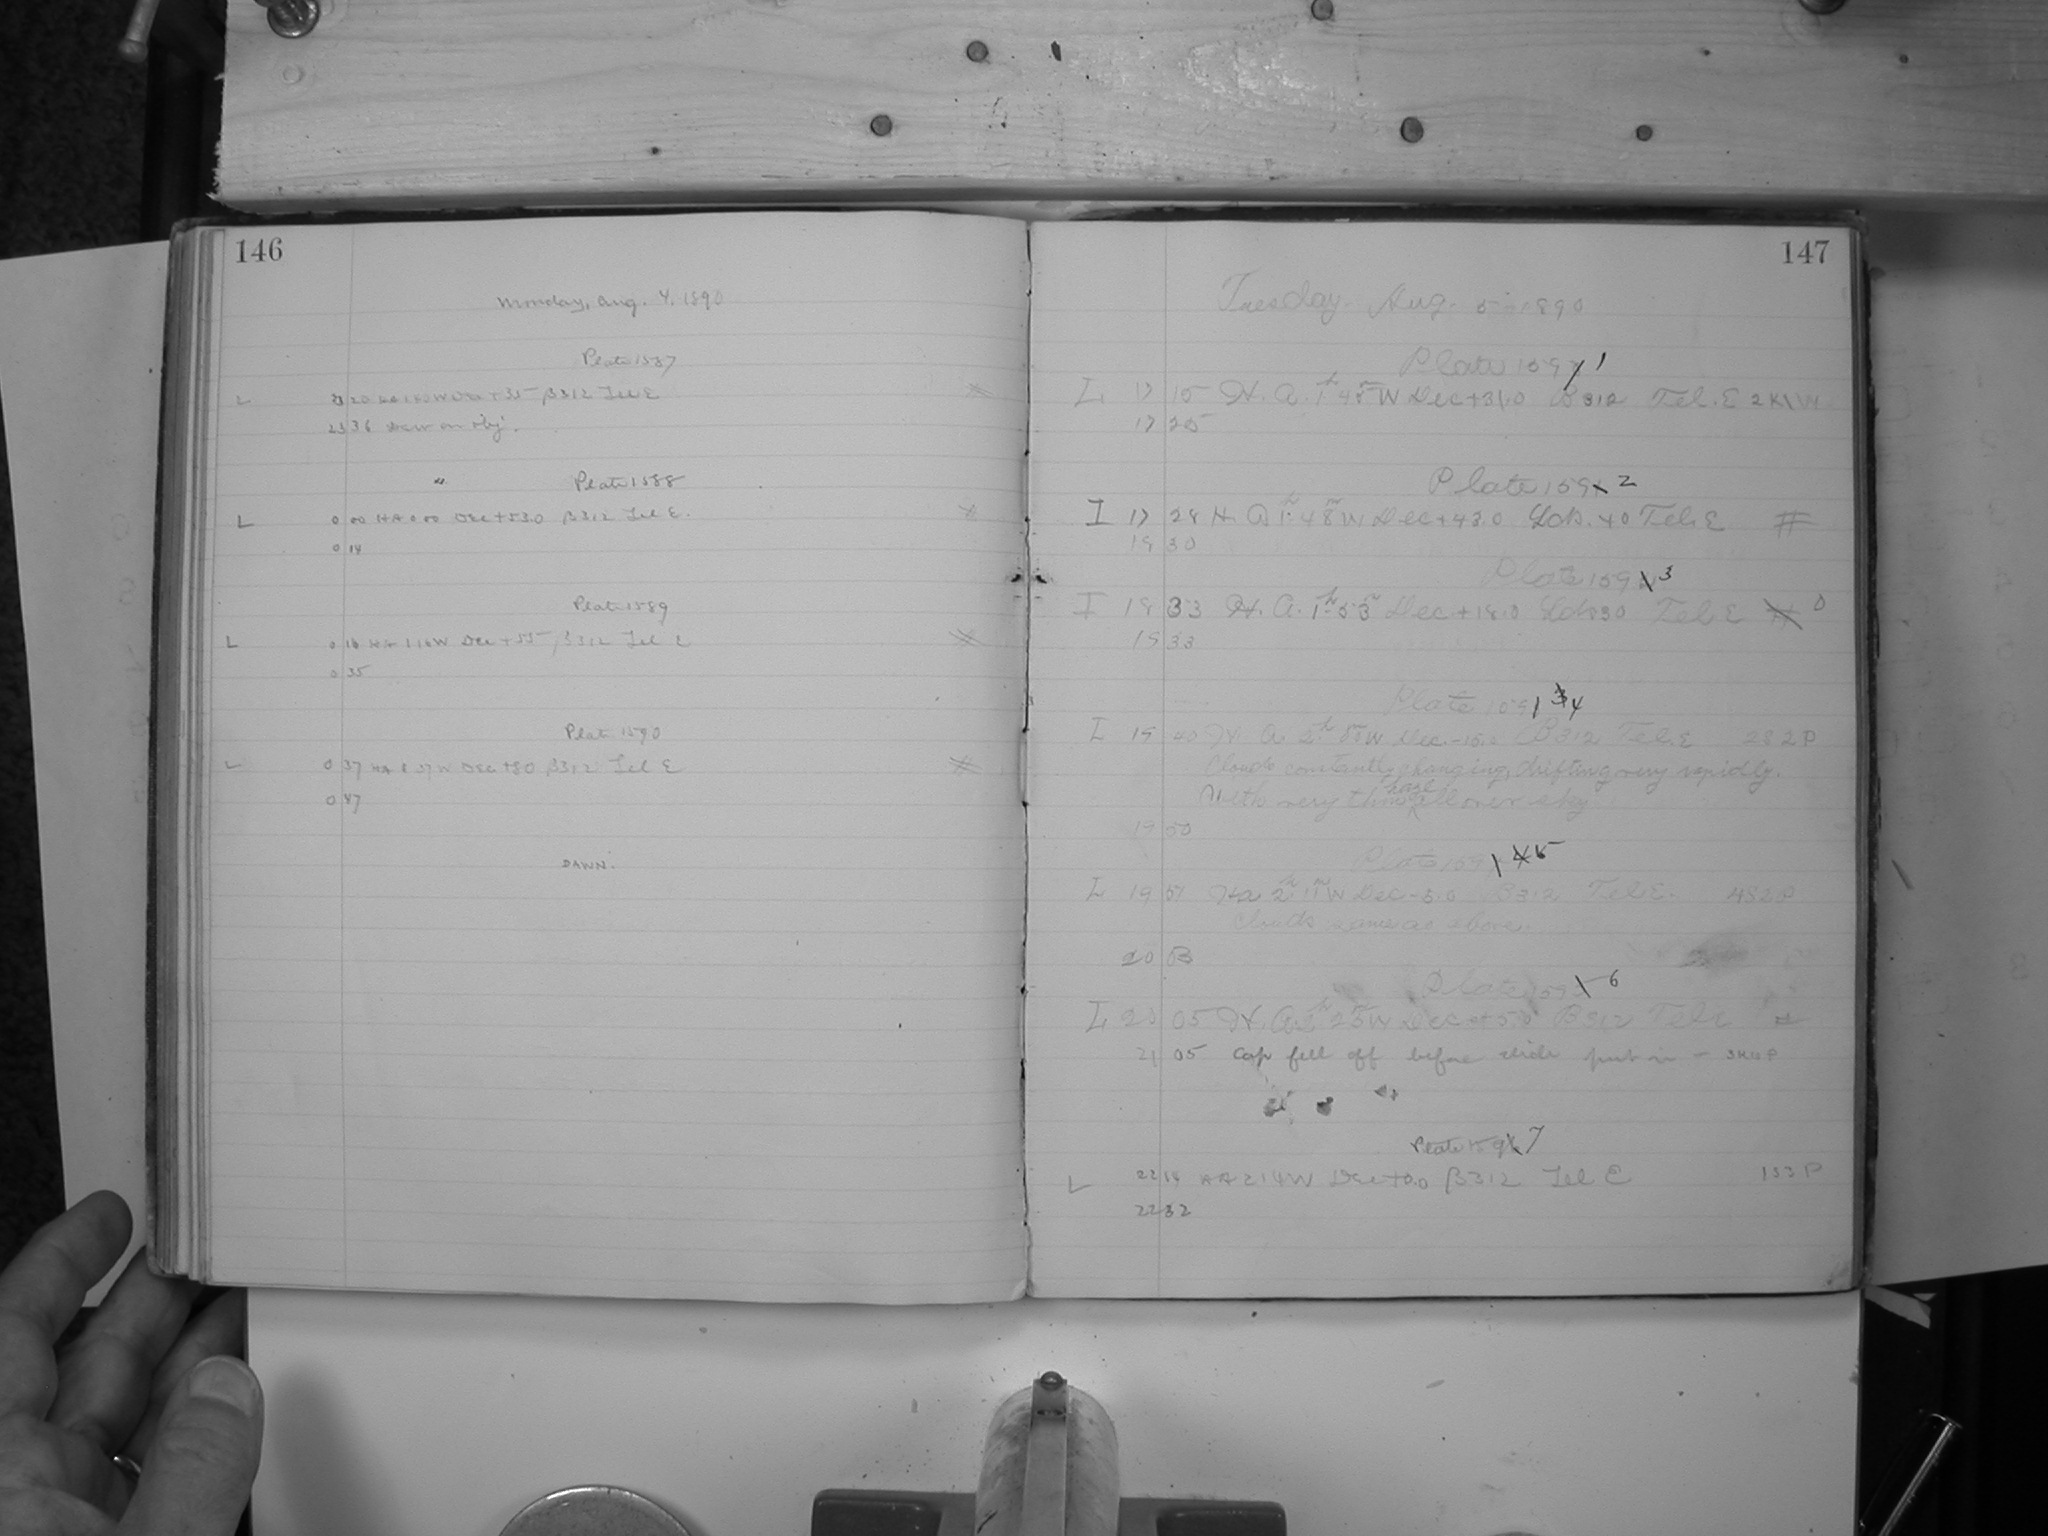 146
Monday, Aug. 4, 1890
Plate 1587
L 23 20 Dec +35 β312 Tel E
23 36 Dew on obj.
" Plate 1588
L 0 00 HA 0 00 Dec +53.0 β312 Tel E.
0 14
Plate 1589
L 0 16 HA 1 16 W Dec +55 β312 Tel E
0 35
Plate 1590
L 0 37 HA W Dec +80 β312 Tel E
0 47
DAWN.
147
Tuesday. Aug. 5 1890
Plate 159 1
I 17 15 H. A. 1h 48m W Dec +31.0 B312 Tel. E
17 25
Plate 159 2
I 17 28 H. A 1h 48m W Dec +43.0 40 Tel. E
18 30
Plate 159 3
I 18 33 H. A. 1h 53m Dec +18.0 Tel E 0
19 33
Plate 159 4
I 19 40 H. A 2h W Dec. B312 Tel. E 282P
Clouds constantly changing, drifting very rapidly.
With very thin haze all over sky.
19 50
Plate 159 5
I 19 51 HA 2h 11m W Dec -5.0 B312 Tel E. 482P
Clouds same as above.
20
Plate 159 6
I 20 05 H. A 25m W Dec +5.0 B312 Tel E
21 05 Cap fell off before slide put in –
Plate 159 7
L 22 14 HA 2 14 W Dec +0.0 β312 Tel E 153P
22 32